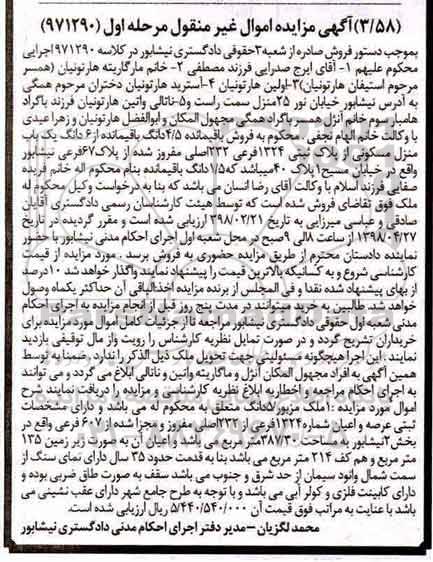 (۳/۵۸) آگهی مزایده اموال غیر منقول مرحله اول (۹۷۱۲۹۰)
بموجب دستور فروش صادره از شعبه۳حقوقی دادگستری نیشابور در کلاسه ۹۷۱۲۹۰ اجرایی
محکوم علیهم ۱- آقای ایرج صدرایی فرزند مصطفی ۲- خانم مارگاریته هارتونیان (همسر
مرحوم استیفان هارتونیان)۳-اولین هارتونیان ۴-آسترید هارتونیان دختران مرحوم همگی
به آدرس نیشابور خیابان نور ۲۵منزل سمت راست و۵-ناتالی واتین هارتونیان فرزند باگراد
هامبارسوم خانم آنژل همسر باگراد همگی مجهول المکان و ابوالفضل هارتونیان و زهرا عیدی
با وکالت خانم الهام نجفی محکوم به فروش باقیمانده ۴/۵دانگ باقیمانده از۶ دانگ یک باب
منزل مسکونی از پلاک ثبتی ۱۳۲۴فرعی ۲۳۲اصلی مفروز شده از پلاک۶۷فرعی نیشابور
واقع در خیابان مسیح۱پلاک ۴۰میباشد که۱/۵دانگ باقیمانده بنام محکوم اله خانم فریده
صفایی فرزند اسلام با وکالت آقای رضا انسان می باشد که بنا به درخواست وکیل محکوم له
ملک فوق تقاضای فروش شده است که توسط هیئت کارشناسان رسمی دادگستری آقایان
صادقی و عباسی میرزایی به تاریخ ۳۹۸/۰۲/۲۱ ارزیابی شده است و مقرر گردیده در تاریخ
۱۳۹۸/۰۴/۲۷ از ساعت ۸الی ۹صبح در محل شعبه اول اجرای احکام مدنی نیشابور با حضور
نماینده دادستان محترم از طریق مزایده حضوری به فروش برسد . مورد مزایده از قیمت
کارشناسی شروع و به کسانیکه بالاترین قیمت را پیشنهاد نمایند واگذار خواهد شد ۱۰درصد
از بهای پیشنهاد شده نقدا و فی المجلس از برنده مزایده اخذ الباقی آن حداکثر یکماه وصول
خواهد شد طالبین به خرید میتوانند در مدت پنج روز قبل از انجام مزایده به اجرای احکام
مدنی شعبه اول حقوقی دادگستری نیشابور مراجعه تا از جزئیات کامل اموال مورد مزایده برای
خریداران تشریح گردد و در صورت تمایل نظریه کارشناس را رویت و از مال توقیفی بازدید
نمایند . این اجرا هیچگونه مسئولیتی جهت تحویل ملک ذیل الذکر را ندارد . ضمنا به توسط
همین آگهی به افراد مجهول المکان آنژل و ماگاریته واتین و ناتالی ابلاغ می گردد و می توانند
به اجرای احکام مراجعه و اخطاریه ابلاغ نظریه کارشناسی و مزایده را دریافت نمایند شرح
اموال مورد مزایده :۱ملک مزبور۵دانگ متعلق به محکوم له می باشد و دارای مشخصات
ثبتی عرصه و اعیان شماره۱۳۲۴فرعی از ۲۳۲اصلی مفروز و مجزا شده از ۶۰۷ فرعی واقع در
بخش۲نیشابور به مساحت ۳۸۷/۳۰متر مربع می باشد و اعیان آن به صورت زیر زمین ۱۳۵
متر مربع و هم کف ۲۱۴ متر مربع می باشد بنا به قدمت حدود ۳۵ سال دارای نمای سنگ از
سمت شمال وانود سیمان از حد شرق و جنوب می باشد سقف به صورت طاق ضربی بوده و
دارای کابینت فلزی و کولر آبی می باشد و با توجه به طرح جامع شهر دارای عقب نشینی می
باشد با عنایت به مراتب فوق قیمت آن ۵/۴۴۰/۵۴۰/۰۰۰ ریال ارزیابی شده است.
محمد لگزیان – مدیر دفتر اجرای احکام مدنی دادگستری نیشابور